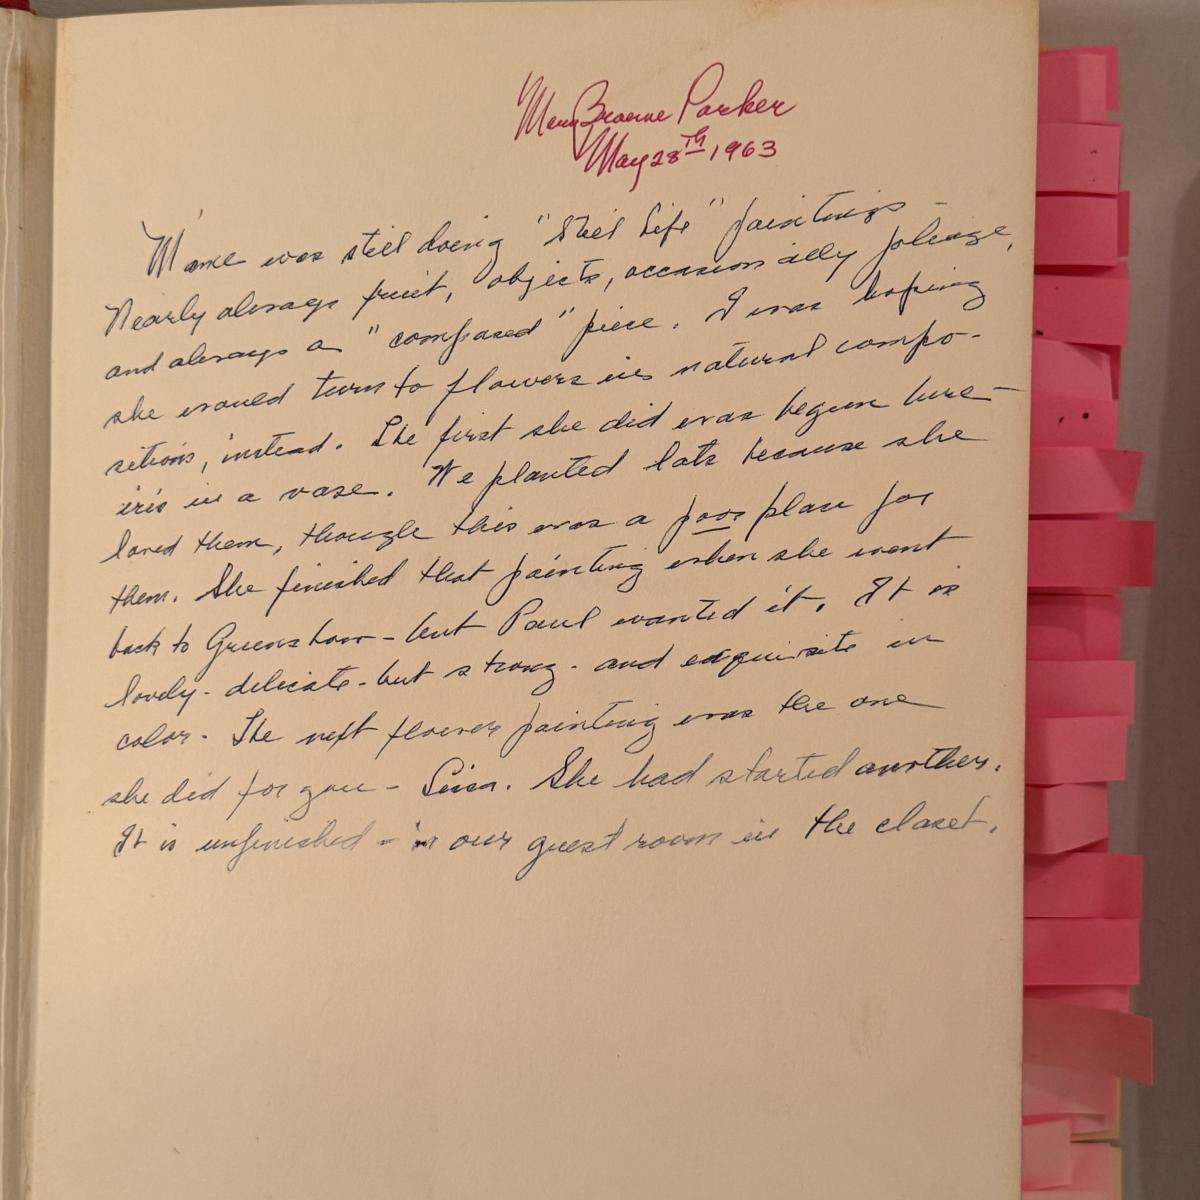 Mary Browne Parker
May 28th 1963
Mame was still doing "Still Life" paintings -
Nearly always fruit, objects, occasionally foliage,
and always a "composed" piece. I was hoping
she would turn to flowers in natural compo-
sitions, instead. The first she did was begun here -
iris in a vase. We planted lots because she
loved them, though this was a poor place for
them. She finished that painting when she went
back to - but Paul wanted it. It is
lovely - delicate - but strong - and exquisite in
color. The next flower painting was the one
she did for you - She had started another.
It is unfinished - in our guest room in the closet.